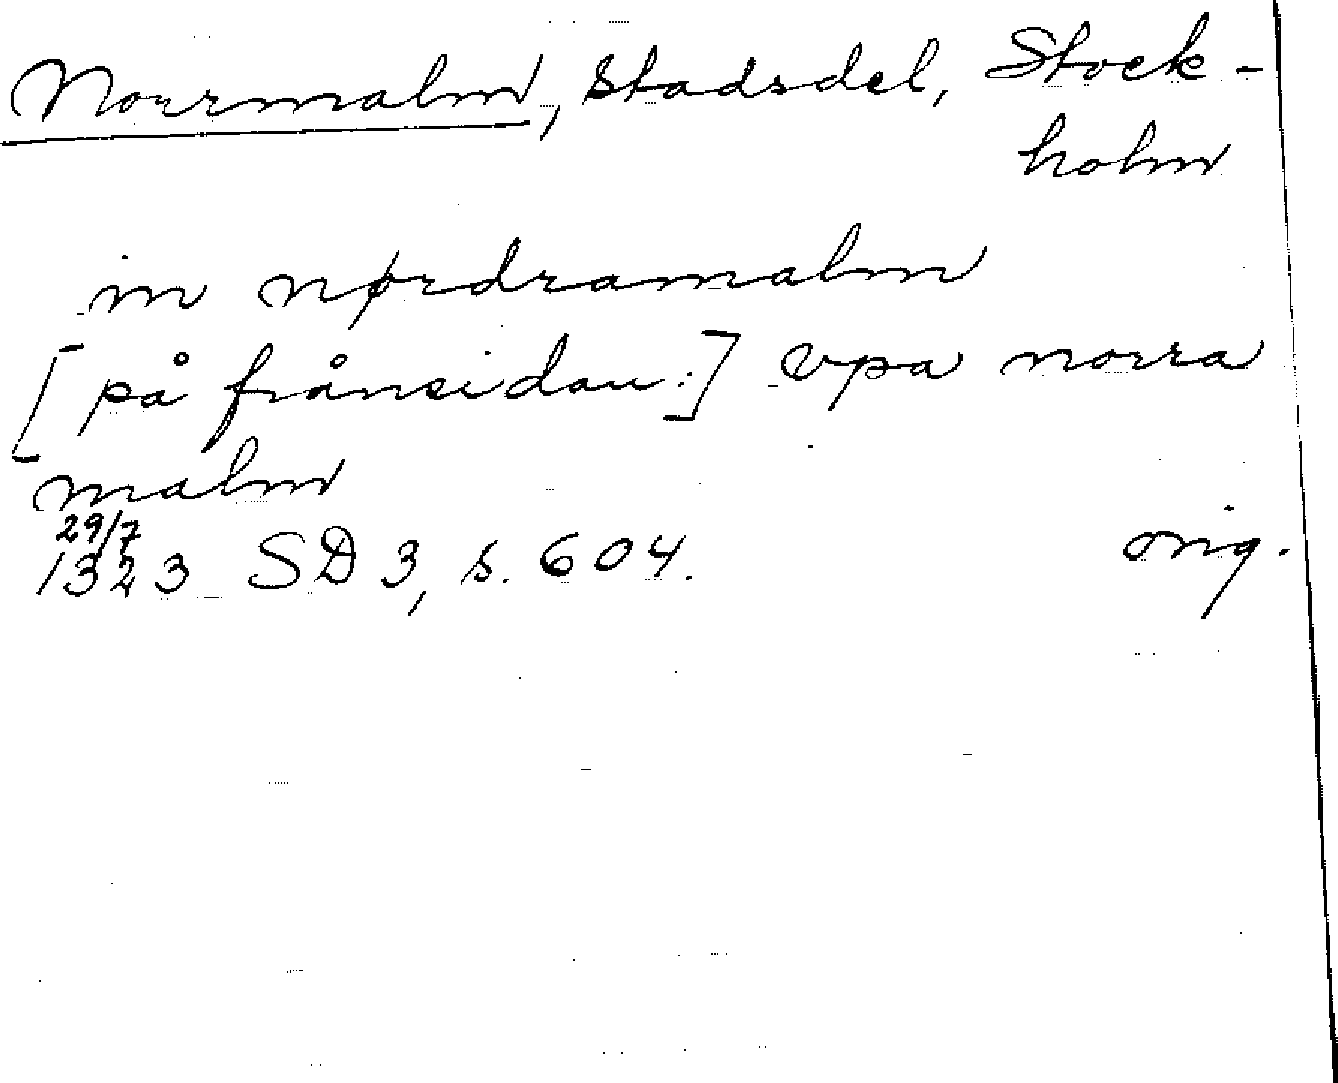 Norrmalm, Stadsdel, Stock-
holm
in nørdramalm
[på frånsidan:] vpa norra
malm
29/7
1323 SD 3, s. 604. orig.